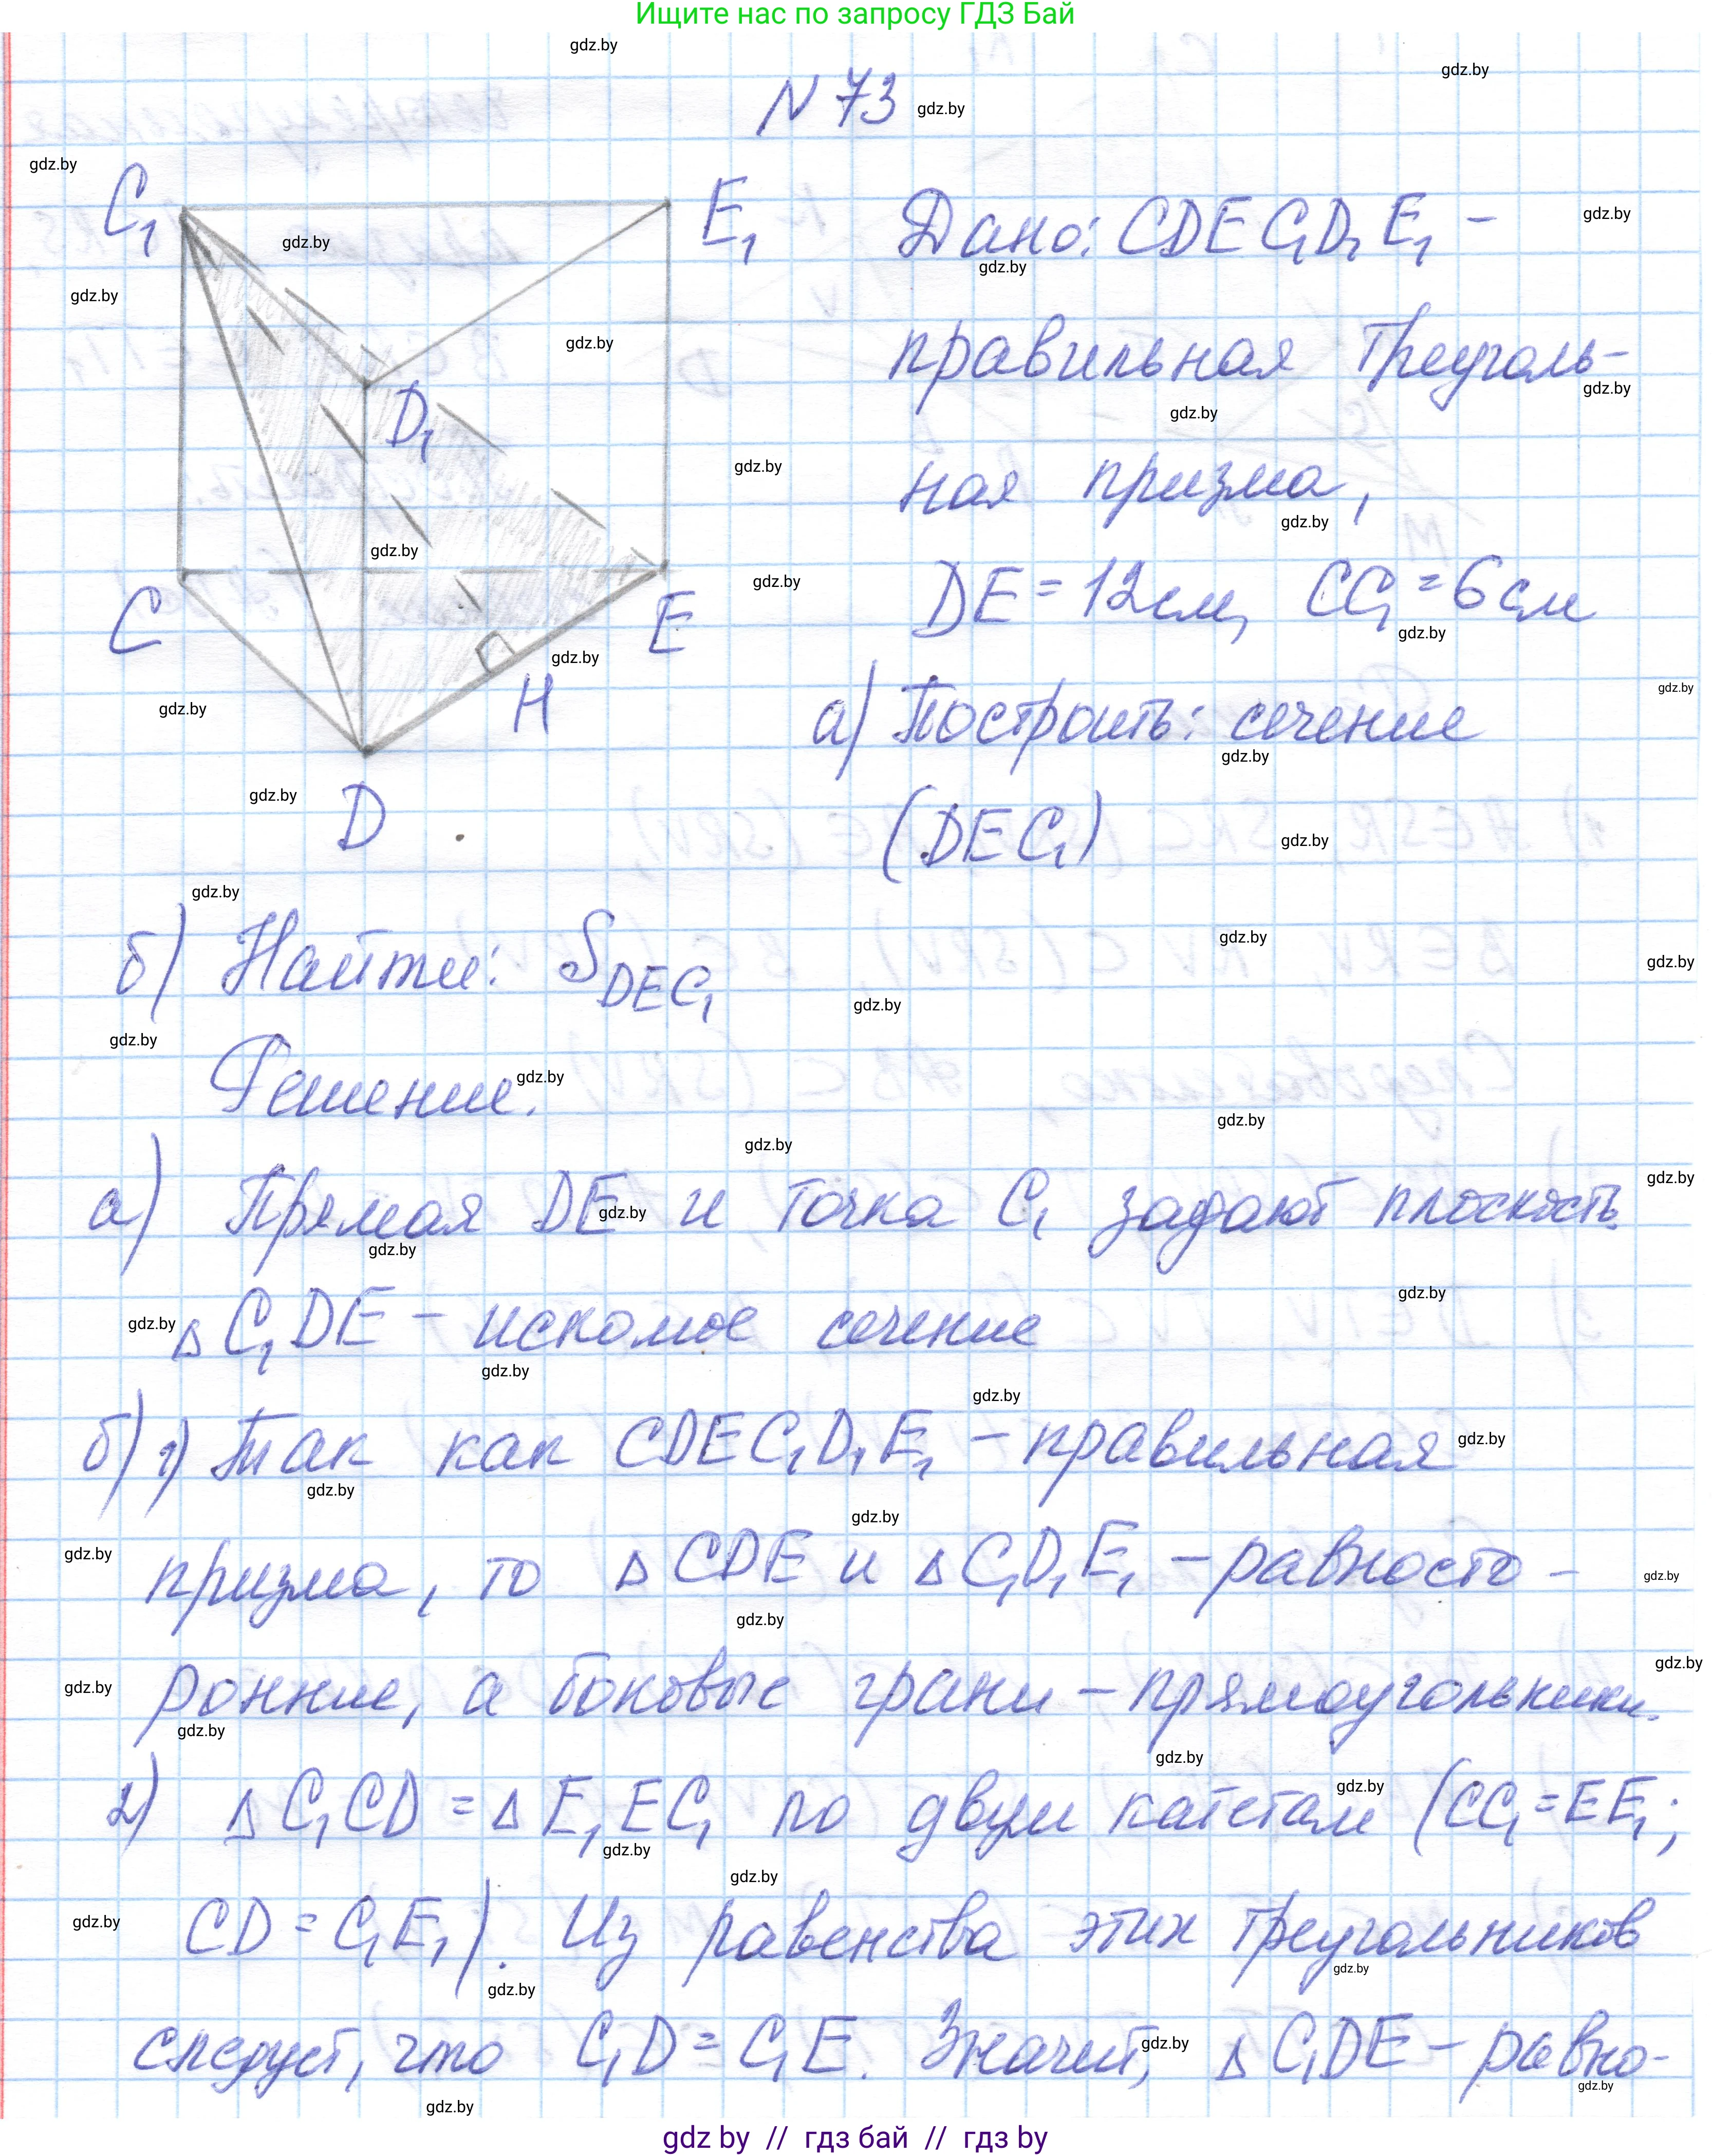 Ищите нас по запросу ГДЗ Бай
N 73
C₁
E₁
D₁
C
E
H
D
Дано: CDEC₁D₁E₁ –
правильная треуголь-
ная призма,
DE = 12см, CC₁ = 6см
а) Построить: сечение
(DEC₁)
б) Найти: S_DEC₁
Решение.
а) Прямая DE и точка C₁ задают плоскость.
△ C₁DE – искомое сечение
б) 1) Так как CDEC₁D₁E₁ – правильная
призма, то △ CDE и △ C₁D₁E₁ – равносто-
ронние, а боковые грани – прямоугольники.
2) △ C₁CD = △ E₁EC₁ по двум катетам (CC₁=EE₁;
CD = C₁E₁). Из равенства этих треугольников
следует, что C₁D = C₁E. Значит, △ C₁DE – равно-
gdz by // гдз бай // гдз by